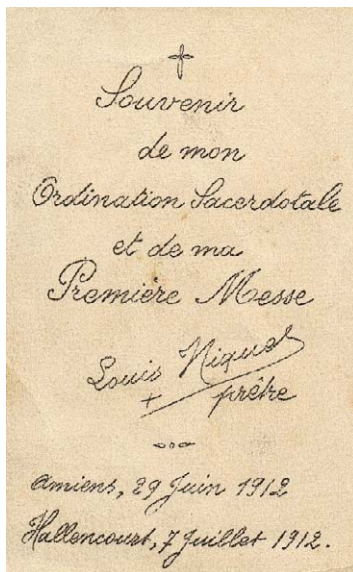 Souvenir
de mon
Ordination Sacerdotale
et de ma
Première Messe
Louis Niquet
prêtre
Amiens, 29 Juin 1912
Hallencourt, 7 Juillet 1912.